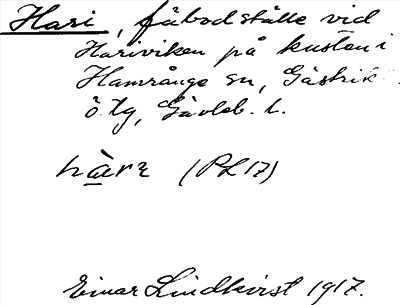 Hari, fäbodställe vid
Hariviken på kusten i
Hamrånge sn, Gästrik
ö. tg, Gävleb. l.
hàrɛ (PL 17)
Einar Lindkvist 1917.